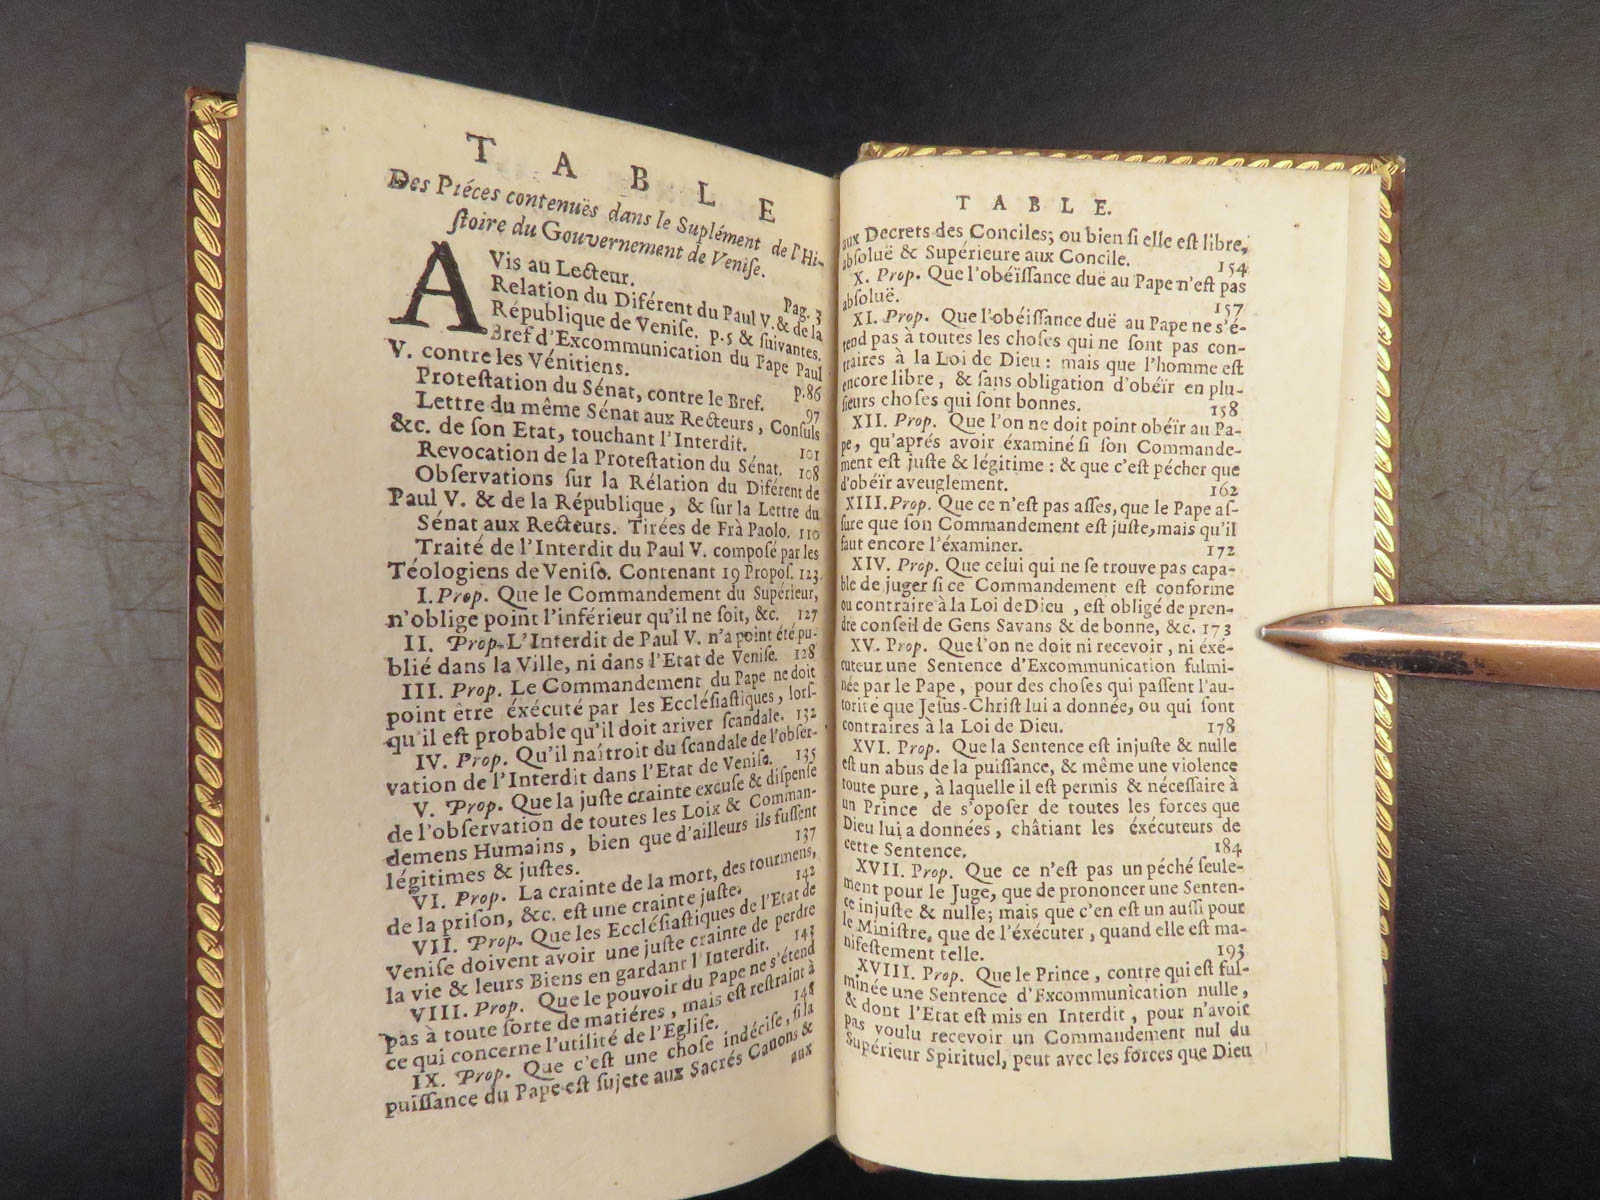 TABLE
Des Piéces contenuës dans le Suplément de l'Hi-
ſtoire du Gouvernement de Veniſe.
AVis au Lecteur. Pag. 3
Relation du Diférent du Paul V. & de la
République de Veniſe. p. 5 & ſuivantes.
Bref d'Excommunication du Pape Paul
V. contre les Vénitiens. p. 86
Proteſtation du Sénat, contre le Bref. 97
Lettre du même Sénat aux Recteurs, Conſuls
&c. de ſon Etat, touchant l'Interdit. 101
Revocation de la Proteſtation du Sénat. 108
Obſervations ſur la Rélation du Diférent de
Paul V. & de la République, & ſur la Lettre du
Sénat aux Recteurs. Tirées de Frà Paolo. 110
Traité de l'Interdit du Paul V. compoſé par les
Téologiens de Veniſe. Contenant 19 Propoſ. 123
I. Prop. Que le Commandement du Supérieur,
n'oblige point l'inférieur qu'il ne ſoit, &c. 127
II. Prop. L'Interdit de Paul V. n'a point été pu-
blié dans la Ville, ni dans l'Etat de Veniſe. 128
III. Prop. Le Commandement du Pape ne doit
point être éxécuté par les Eccléſiaſtiques, lorſ-
qu'il eſt probable qu'il doit ariver ſcandale. 132
IV. Prop. Qu'il naîtroit du ſcandale de l'obſer-
vation de l'Interdit dans l'Etat de Veniſe. 135
V. Prop. Que la juſte crainte excuſe & diſpenſe
de l'obſervation de toutes les Loix & Comman-
demens Humains, bien que d'ailleurs ils fuſſent
légitimes & juſtes. 137
VI. Prop. La crainte de la mort, des tourmens,
de la priſon, &c. eſt une crainte juſte. 142
VII. Prop. Que les Eccléſiaſtiques de l'Etat de
Veniſe doivent avoir une juſte crainte de perdre
la vie & leurs Biens en gardant l'Interdit. 143
VIII. Prop. Que le pouvoir du Pape ne s'étend
pas à toute ſorte de matiéres, mais eſt reſtraint à
ce qui concerne l'utilité de l'Egliſe. 148
IX. Prop. Que c'eſt une choſe indéciſe, ſi la
puiſſance du Pape eſt ſujete aux Sacrés Canons &
aux
TABLE.
aux Decrets des Conciles; ou bien ſi elle eſt libre,
abſoluë & Supérieure aux Concile. 154
X. Prop. Que l'obéïſſance duë au Pape n'eſt pas
abſoluë. 157
XI. Prop. Que l'obéiſſance duë au Pape ne s'é-
tend pas à toutes les choſes qui ne ſont pas con-
traires à la Loi de Dieu: mais que l'homme eſt
encore libre, & ſans obligation d'obéïr en plu-
ſieurs choſes qui ſont bonnes. 158
XII. Prop. Que l'on ne doit point obéïr au Pa-
pe, qu'aprés avoir éxaminé ſi ſon Commande-
ment eſt juſte & légitime: & que c'eſt pécher que
d'obéïr aveuglement. 162
XIII. Prop. Que ce n'eſt pas aſſes, que le Pape aſ-
ſure que ſon Commandement eſt juſte, mais qu'il
faut encore l'éxaminer. 172
XIV. Prop. Que celui qui ne ſe trouve pas capa-
ble de juger ſi ce Commandement eſt conforme
ou contraire à la Loi de Dieu, eſt obligé de pren-
dre conſeil de Gens Savans & de bonne, &c. 173
XV. Prop. Que l'on ne doit ni recevoir, ni éxé-
cuteur une Sentence d'Excommunication fulmi-
née par le Pape, pour des choſes qui paſſent l'au-
torité que Jeſus-Chriſt lui a donnée, ou qui ſont
contraires à la Loi de Dieu. 178
XVI. Prop. Que la Sentence eſt injuſte & nulle
eſt un abus de la puiſſance, & même une violence
toute pure, à laquelle il eſt permis & néceſſaire à
un Prince de s'opoſer de toutes les forces que
Dieu lui a données, châtiant les éxécuteurs de
cette Sentence. 184
XVII. Prop. Que ce n'eſt pas un péché ſeule-
ment pour le Juge, que de prononcer une Senten-
ce injuſte & nulle; mais que c'en eſt un auſſi pour
le Miniſtre, que de l'éxécuter, quand elle eſt ma-
nifeſtement telle. 193
XVIII. Prop. Que le Prince, contre qui eſt ful-
minée une Sentence d'Excommunication nulle,
& dont l'Etat eſt mis en Interdit, pour n'avoir
pas voulu recevoir un Commandement nul du
Supérieur Spirituel, peut avec les forces que Dieu